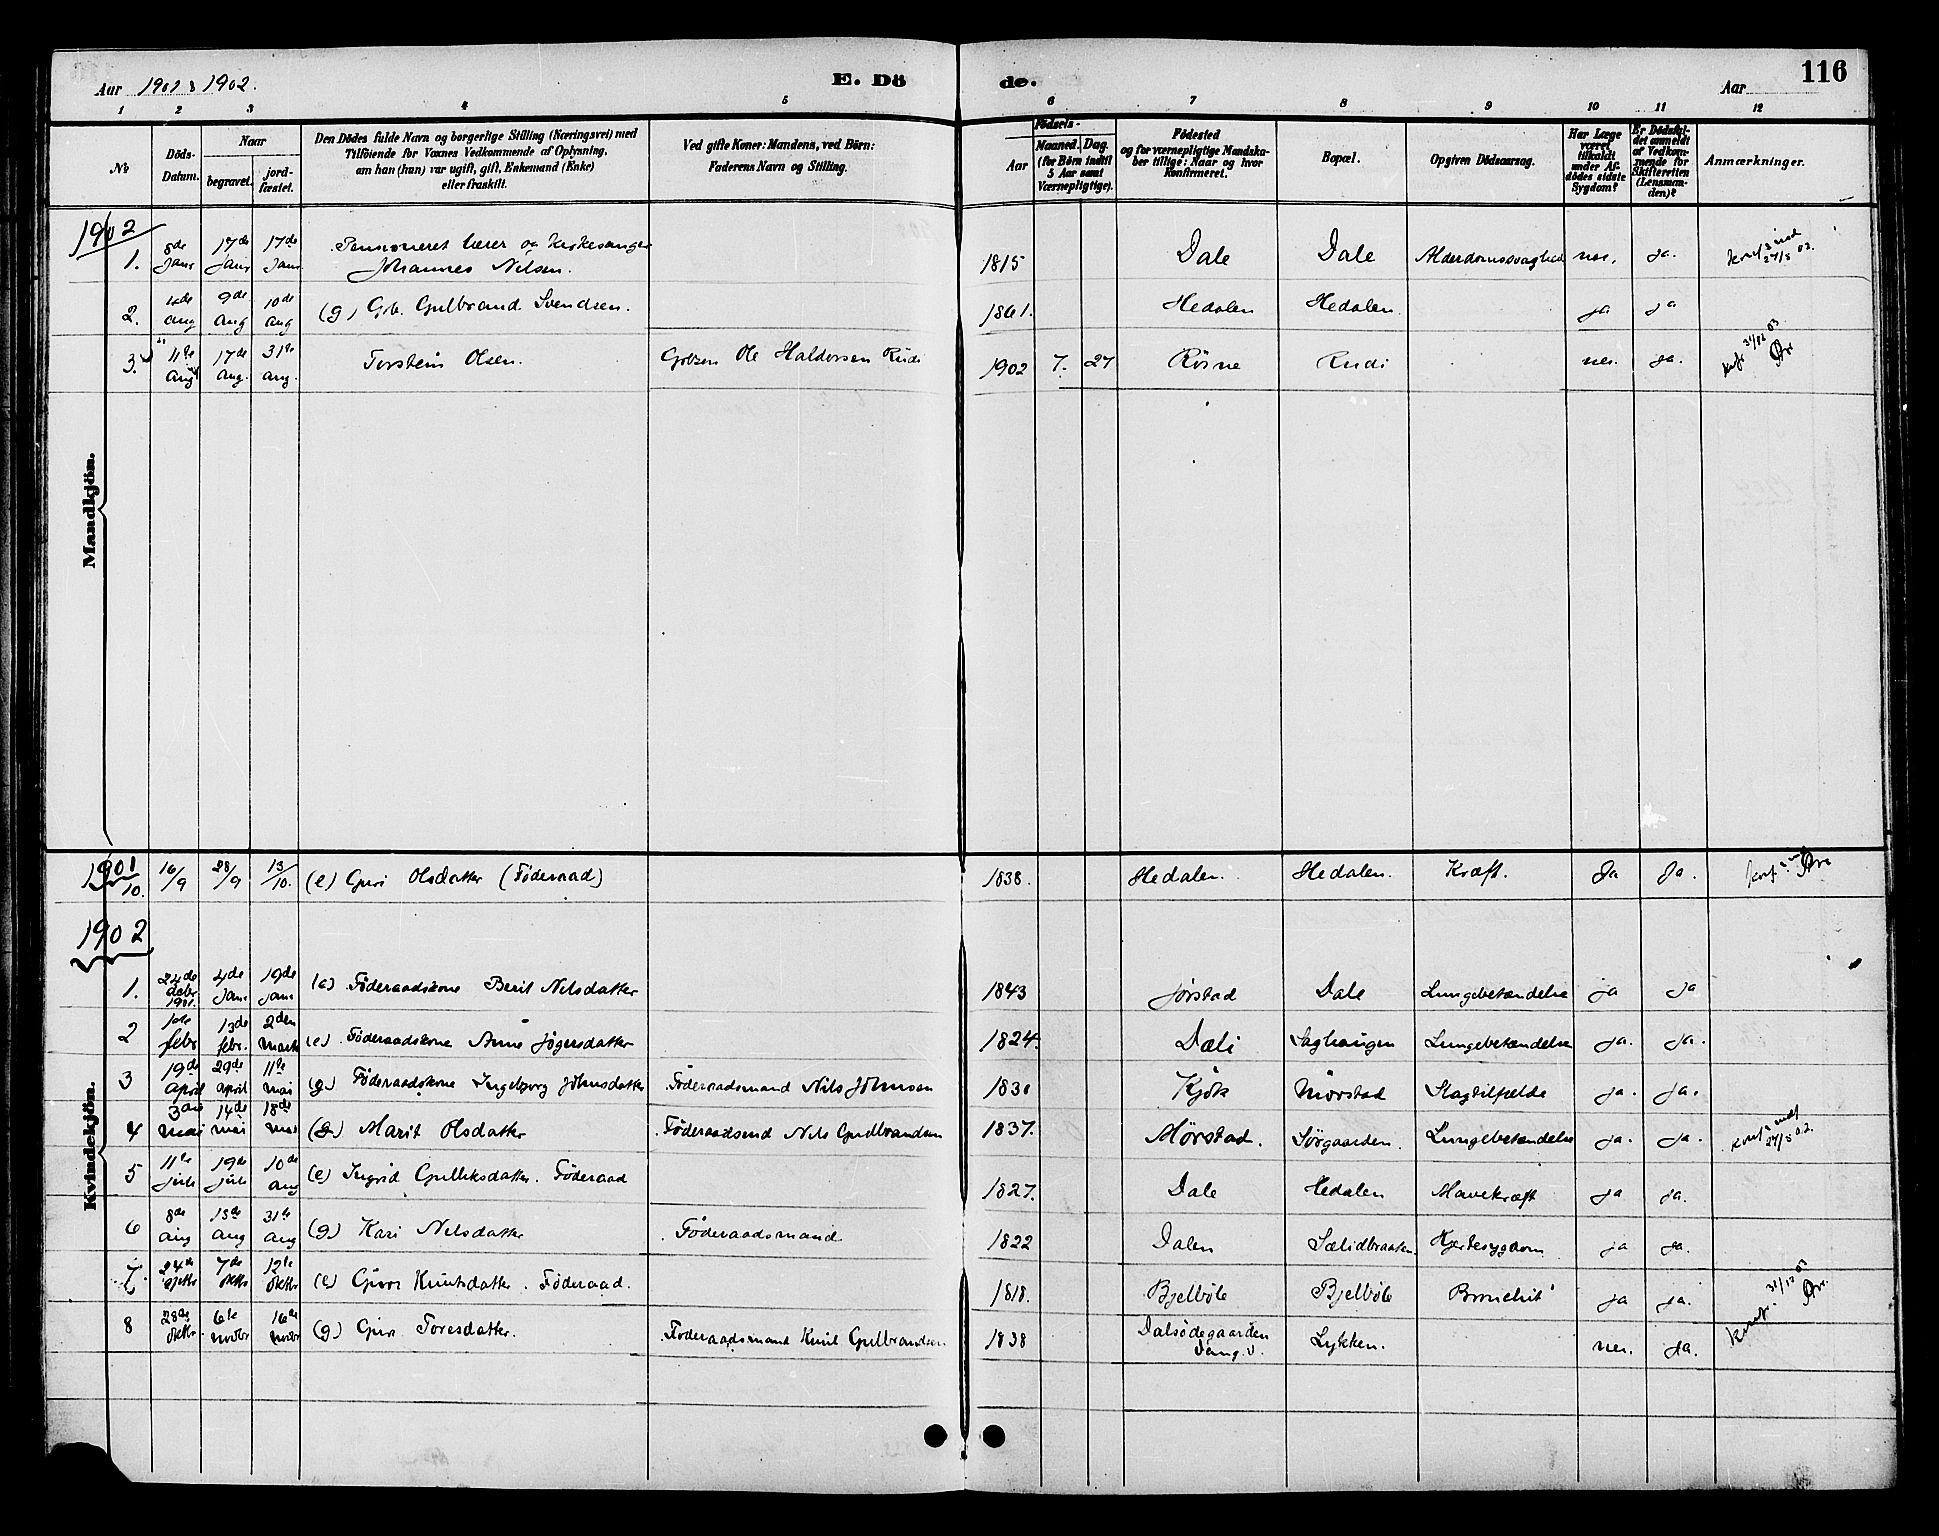 Aar 1901 & 1902.
E. Dö
de.
Aar
116
1 2 3 4 5 6 7 8 9 10 11 12
No
Döds-Datum.
Naar
begravet.
jordfæstet.
Den Dödes fulde Navn og borgerlige Stilling (Næringsvei) med
Tilföiende for Voxnes Vedkommende af Oplysning,
om han (hun) var ugift, gift, Enkemand (Enke)
eller fraskilt.
Ved gifte Koner: Mandens, ved Börn:
Faderens Navn og Stilling.
Födsels-
Aar
Maaned. Dag.
(for Börn indtil
5 Aar samt
Værnepligtige).
Födested
og for værnepligtige Mandska-
ber tillige: Naar og hvor
konfirmeret.
Bopæl.
Opgiven Dödsaarsag.
Har Læge
været
tilkaldt
under Af-
dödes sidste
Sygdom?
Er Dödsfal-
det anmeldt
af Vedkom-
mende for
Skifteretten
(Lensman-
den)?
Anmærkninger.
Mandkjön.
1902
1. 8de Janr 17de Janr 17de Janr Pensioneret lærer og kirkesanger
Johannes Nilsen. 1815 Dale Dale Alderdomssvaghed nei. ja. 27/5 02.
2. aug 9de aug 10de aug (g) Gbr. Gulbrand Svendsen. 1861. Hedalen Hedalen. ja ja
3. 11te aug 17de aug. 31te aug. Torstein Olsen. Gbrsøn Ole Haldorsen Rudi 1902 7. 27 Røine Rudi nei. ja.
Kvindekjön.
1901
10. 16/9 28/9 13/10. (e) Guri Olsdatter (Føderaad) 1838. Hedalen. Hedalen. Kræft. Ja Ja.
1902
1. 24de decbr 1901. 4de Janr 19de Janr (e) Føderaadskone Berit Nilsdatter 1843 Jørstad Dale Lungebetændelse ja ja
2 1ste febr 13de febr. 2den marts (e) Føderaadskone Anne Jøgersdatter 1824. Dæli Saghaugen Lungebetændelse ja. ja.
3 19de april 29de april 11te mai (g) Føderaadskone Ingebjørg Johnsdatter Føderaadsmand Nils Johnsen 1830 Kjøk Mørstad Slagtilfælde ja. ja.
4 3die mai 14de mai 18de mai (g) Marit Olsdatter Føderaadsmd Nils Gudbrandsen 1837. Mørstad. Sørgaarden. Lungebetændelse ja. ja. 27/5 02.
5 11te juli 19de juli 10de aug (e) Ingrid Gulliksdatter. Føderaad 1827. Dale Hedalen Mavekræft ja ja.
6 8de aug 13de aug 31te aug (g) Kari Nilsdatter Føderaadsmand 1822 Dalen Sælidbraaten Hjertesygdom ja ja.
7. 24de septbr 7de oktbr 12te oktbr (e) Guro Knutsdatter. Føderaad. 1818. Bjelbøle Bjelbøle Bronchit ja ja.
8 28de oktbr. 6te novbr 16de novbr (g) Guro Toresdatter. Føderaadsmand Knut Gulbrandsen. 1838 Dalsødegaarden
Vang. V. Lykken. nei. ja.